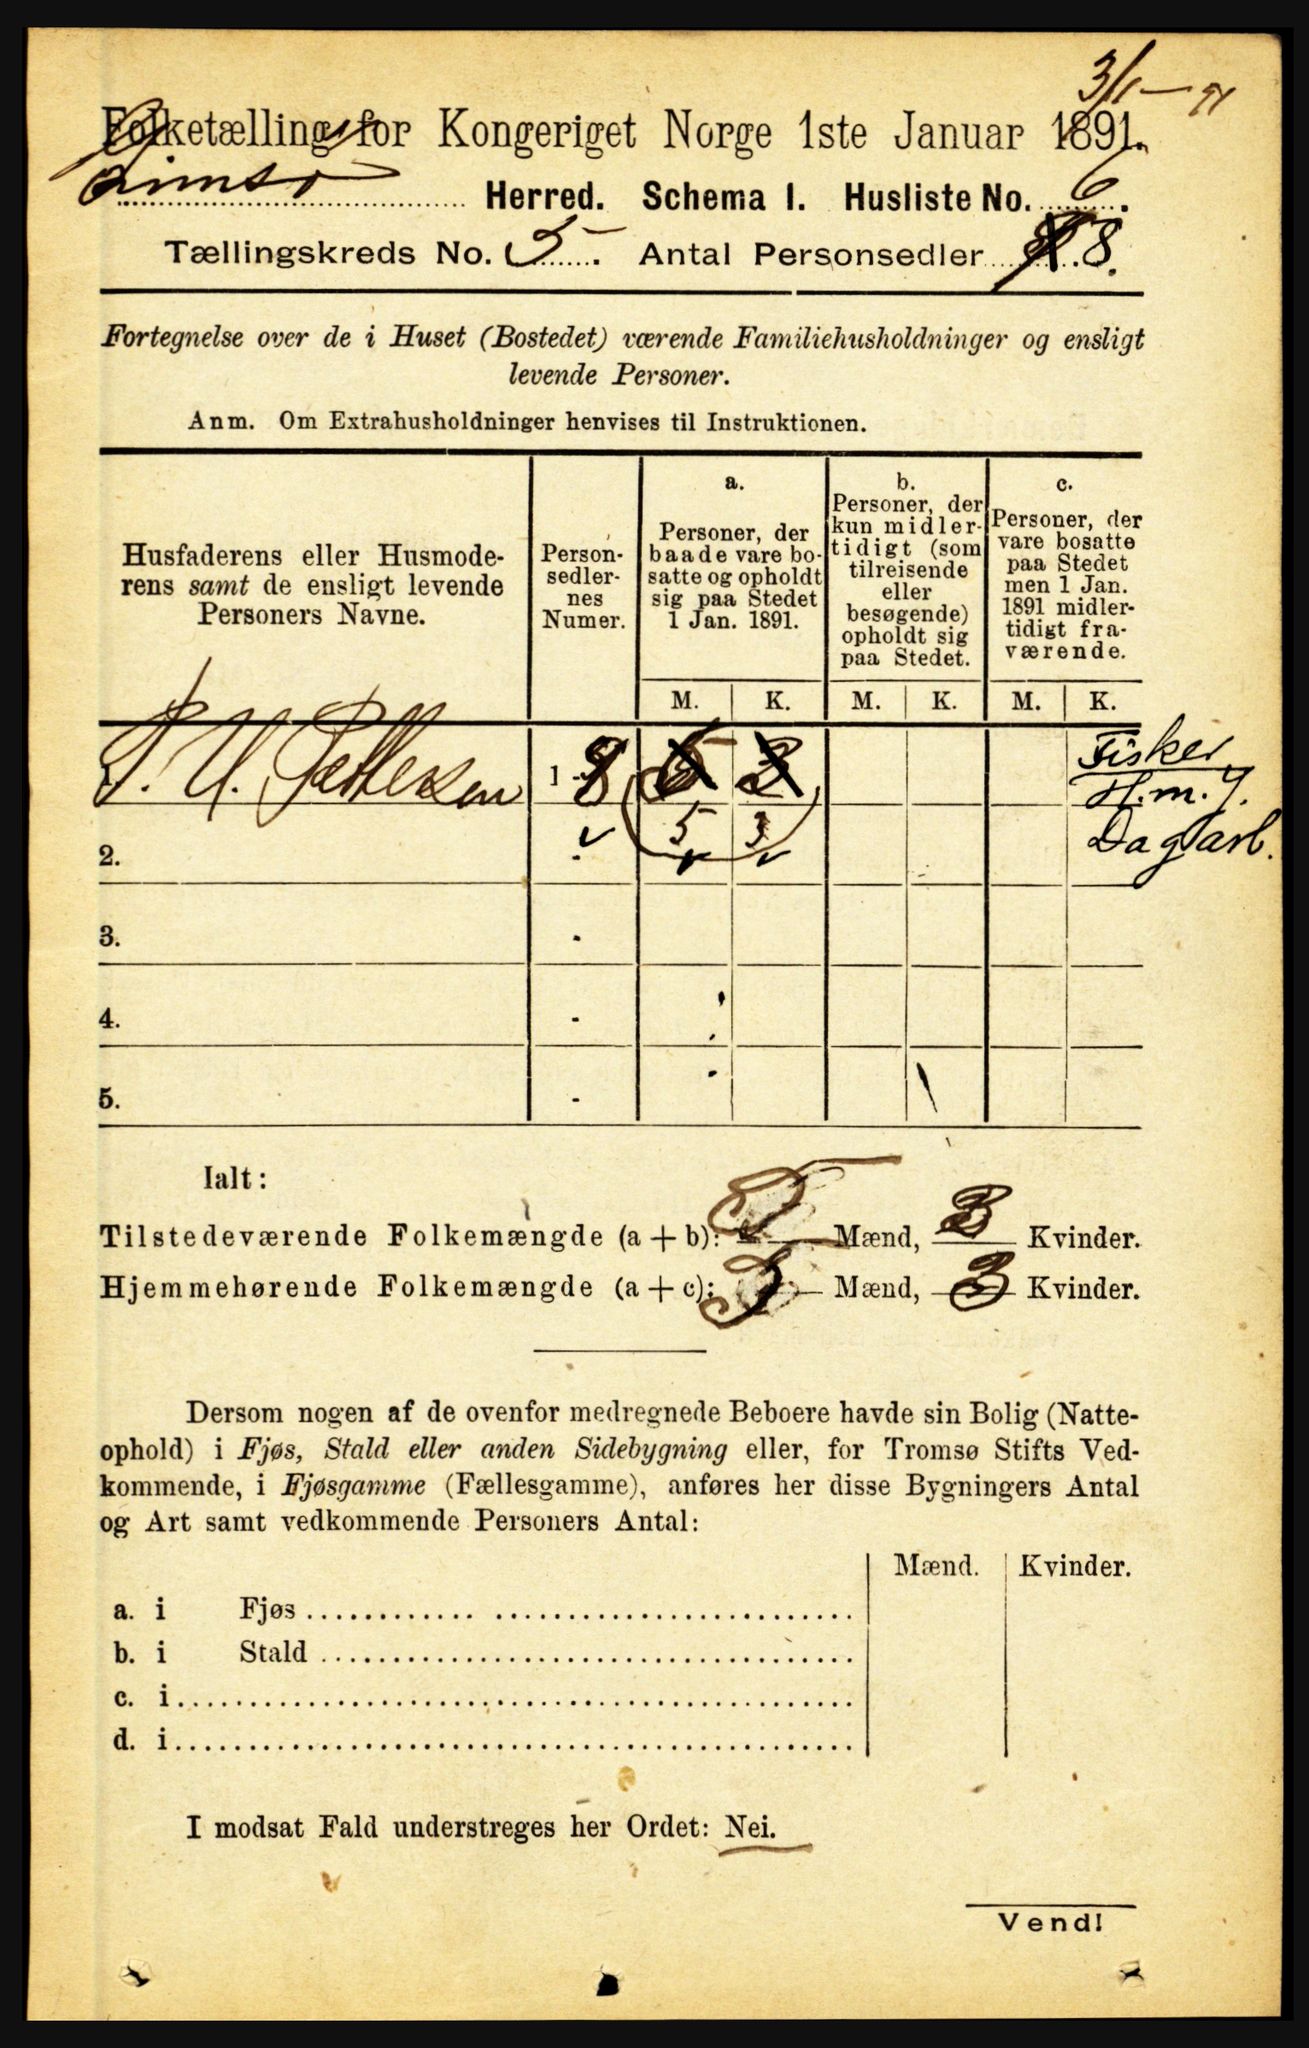 3/1–91
Folketælling for Kongeriget Norge 1ste Januar 1891.
Gimsø Herred. Schema I. Husliste No. 6.
Tællingskreds No. 5. Antal Personsedler 8.
Fortegnelse over de i Huset (Bostedet) værende Familiehusholdninger og ensligt
levende Personer.
Anm. Om Extrahusholdninger henvises til Instruktionen.
Husfaderens eller Husmode-
rens samt de ensligt levende
Personers Navne.
Person-
sedler-
nes
Numer.
a.
Personer, der
baade vare bo-
satte og opholdt
sig paa Stedet
1 Jan. 1891.
b.
Personer, der
kun midler-
tidigt (som
tilreisende
eller
besøgende)
opholdt sig
paa Stedet.
c.
Personer, der
vare bosatte
paa Stedet
men 1 Jan.
1891 midler-
tidigt fra-
værende.
M. K. M. K. M. K.
P. U. Pettersen 1 - 8 5 3 Fisker
H.m.J.
2. 5 3 Dagarb.
3. -
4. -
5. -
Ialt:
Tilstedeværende Folkemængde (a + b): 5 Mænd, 3 Kvinder.
Hjemmehørende Folkemængde (a + c): 5 Mænd, 3 Kvinder.
Dersom nogen af de ovenfor medregnede Beboere havde sin Bolig (Natte-
ophold) i Fjøs, Stald eller anden Sidebygning eller, for Tromsø Stifts Ved-
kommende, i Fjøsgamme (Fællesgamme), anføres her disse Bygningers Antal
og Art samt vedkommende Personers Antal:
Mænd. Kvinder.
a. i Fjøs
b. i Stald
c. i
d. i
I modsat Fald understreges her Ordet: Nei.
Vend!